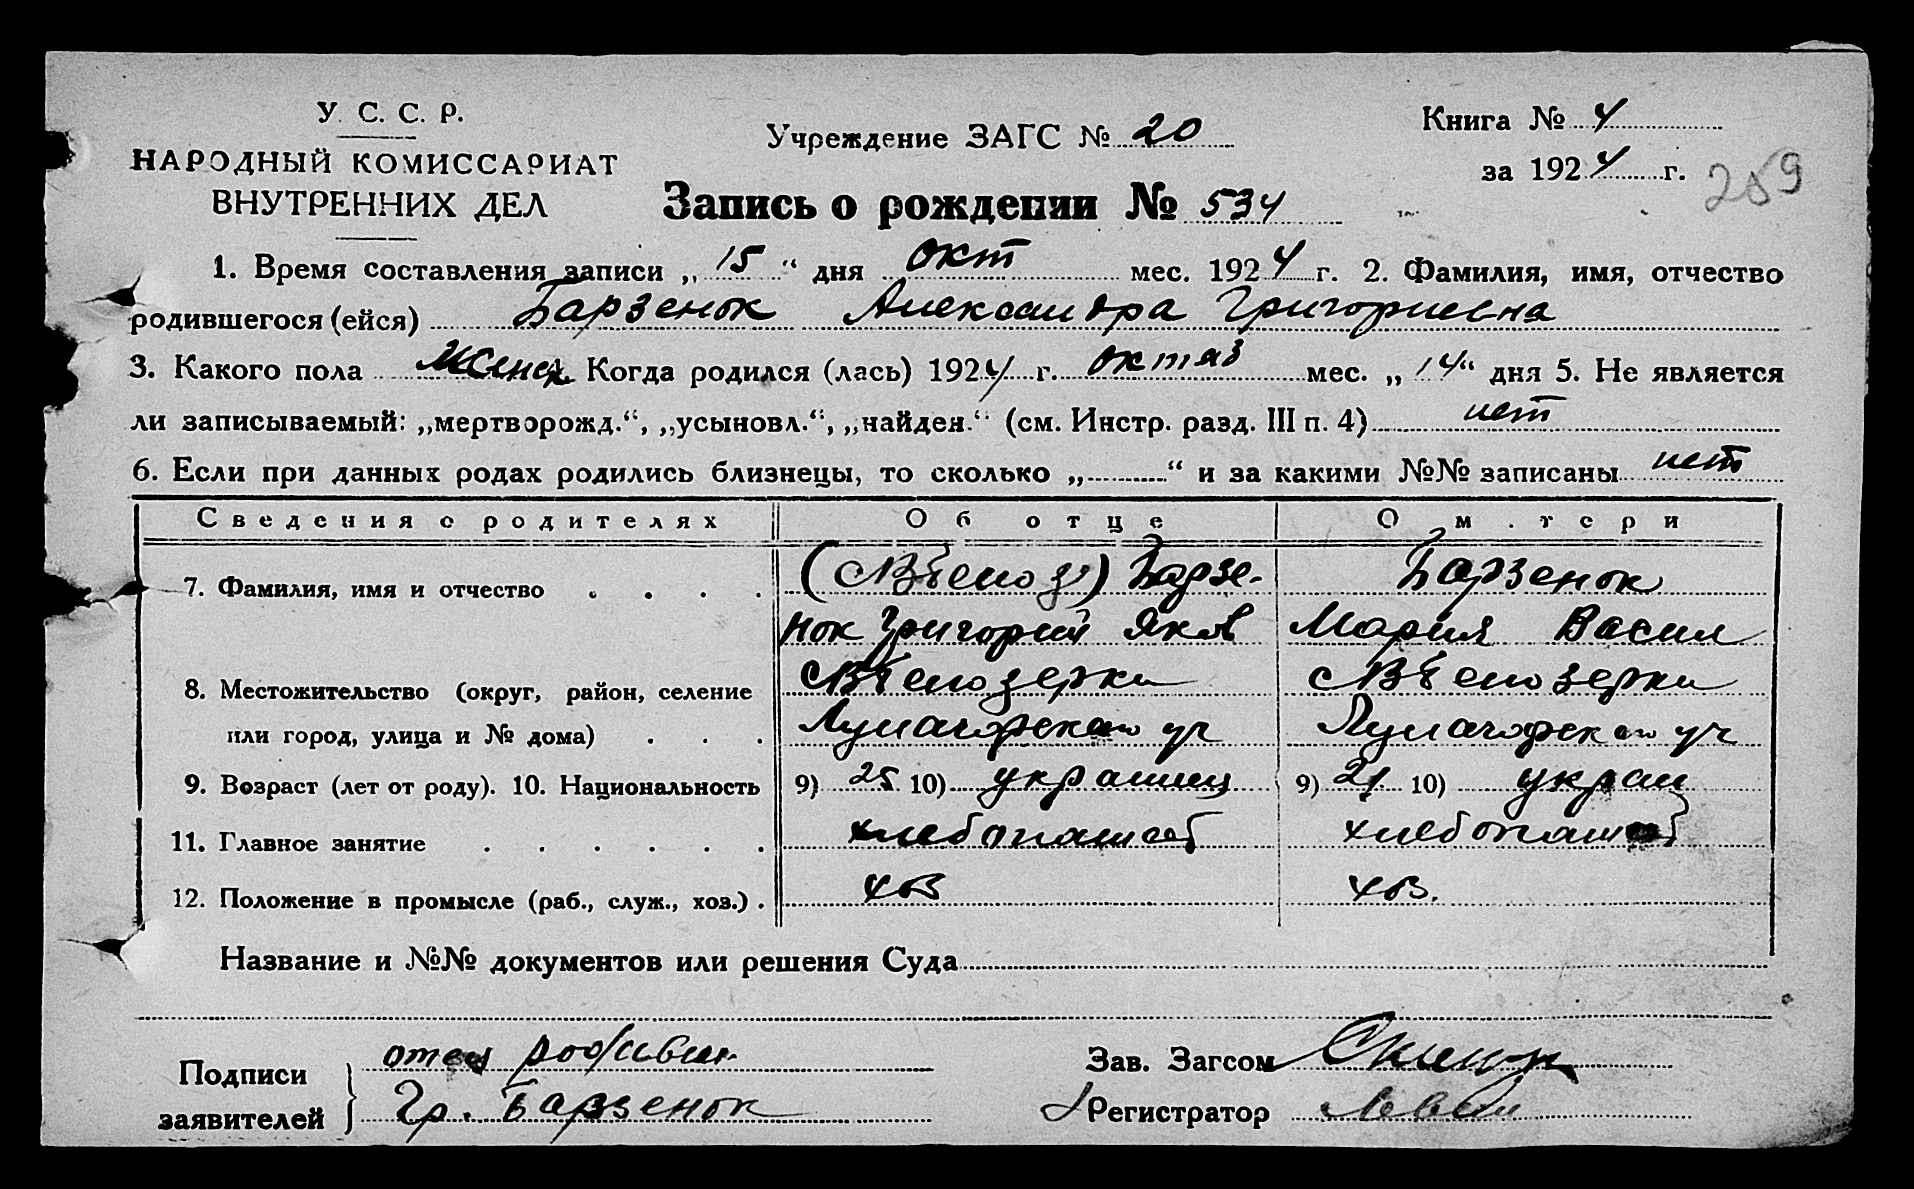 У. С. С. Р.
НАРОДНЫЙ КОМИССАРИАТ
ВНУТРЕННИХ ДЕЛ
Учреждение ЗАГС № 20
Книга № 4
за 1924 г.
259
Запись о рождении № 534
1. Время составления записи „15“ дня окт мес. 1924 г. 2. Фамилия, имя, отчество
родившегося (ейся) Барзенок Александра Григориевна
3. Какого пола женск. Когда родился (лась) 1924 г. октяб мес. „14“ дня 5. Не является
ли записываемый: „мертворожд.“, „усыновл.“, „найден.“ (см. Инстр. разд. III п. 4) нет
6. Если при данных родах родились близнецы, то сколько „ “ и за какими №№ записаны нет
Сведения о родителях Об отце О м.тери
7. Фамилия, имя и отчество Барзе- Барзенок
нок Григорий Яков Мария Васил
8. Местожительство (округ, район, селение
или город, улица и № дома) уч уч
9. Возраст (лет от роду). 10. Национальность 9) 25 10) украинц 9) 21 10) украин
11. Главное занятие хлебопашеств хлебопашеств
12. Положение в промысле (раб., служ., хоз.) хоз хоз.
Название и №№ документов или решения Суда
Подписи заявителей отец
Гр. Барзенок
Зав. Загсом
Регистратор